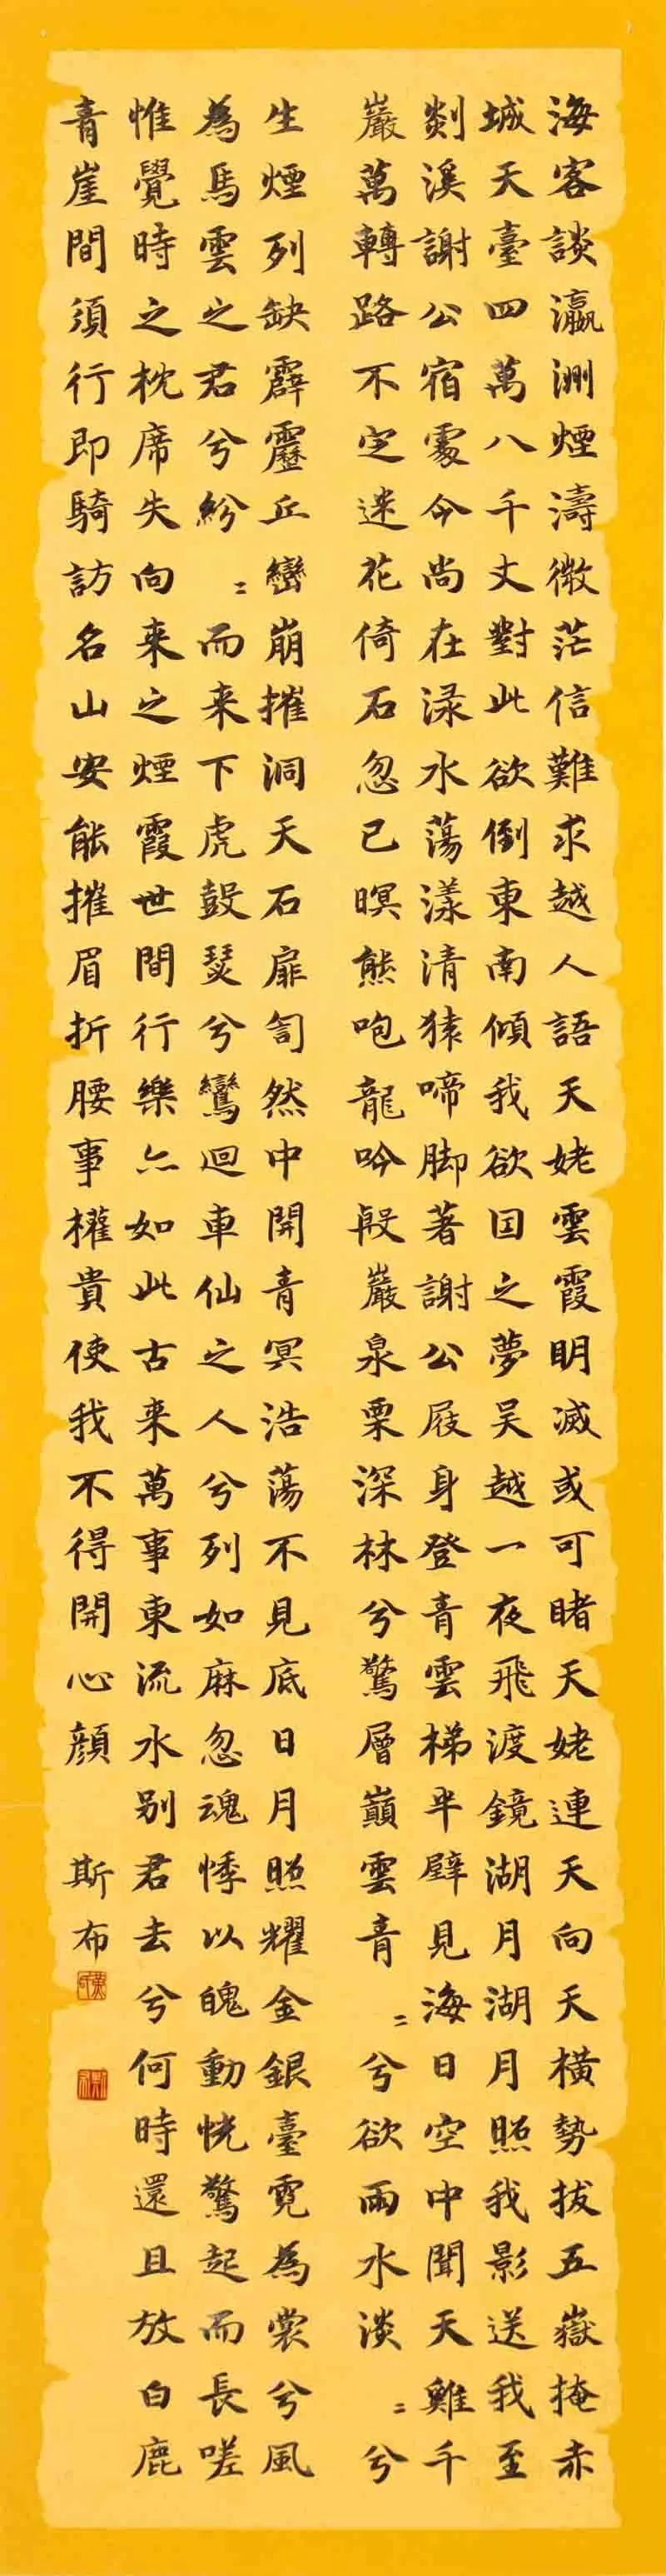 海客談瀛洲煙濤微茫信難求越人語天姥雲霞明滅或可睹天姥連天向天橫勢拔五嶽掩赤
城天臺四萬八千丈對此欲倒東南傾我欲囙之夢吴越一夜飛渡鏡湖月湖月照我影送我至
剡溪謝公宿處今尚在渌水蕩漾清猿啼脚著謝公屐身登青雲梯半壁見海日空中聞天雞千
巖萬轉路不定迷花倚石忽已暝熊咆龍吟殷巖泉栗深林兮驚層巔雲青〻兮欲雨水淡〻兮
生煙列缺霹靂丘巒崩摧洞天石扉訇然中開青冥浩蕩不見底日月照耀金銀臺霓為裳兮風
為馬雲之君兮紛〻而来下虎鼓瑟兮鸞迴車仙之人兮列如麻忽魂悸以魄動恍驚起而長嗟
惟覺時之枕席失向来之煙霞世間行樂亦如此古来萬事東流水别君去兮何時還且放白鹿
青崖間須行即騎訪名山安能摧眉折腰事權貴使我不得開心顔 斯布